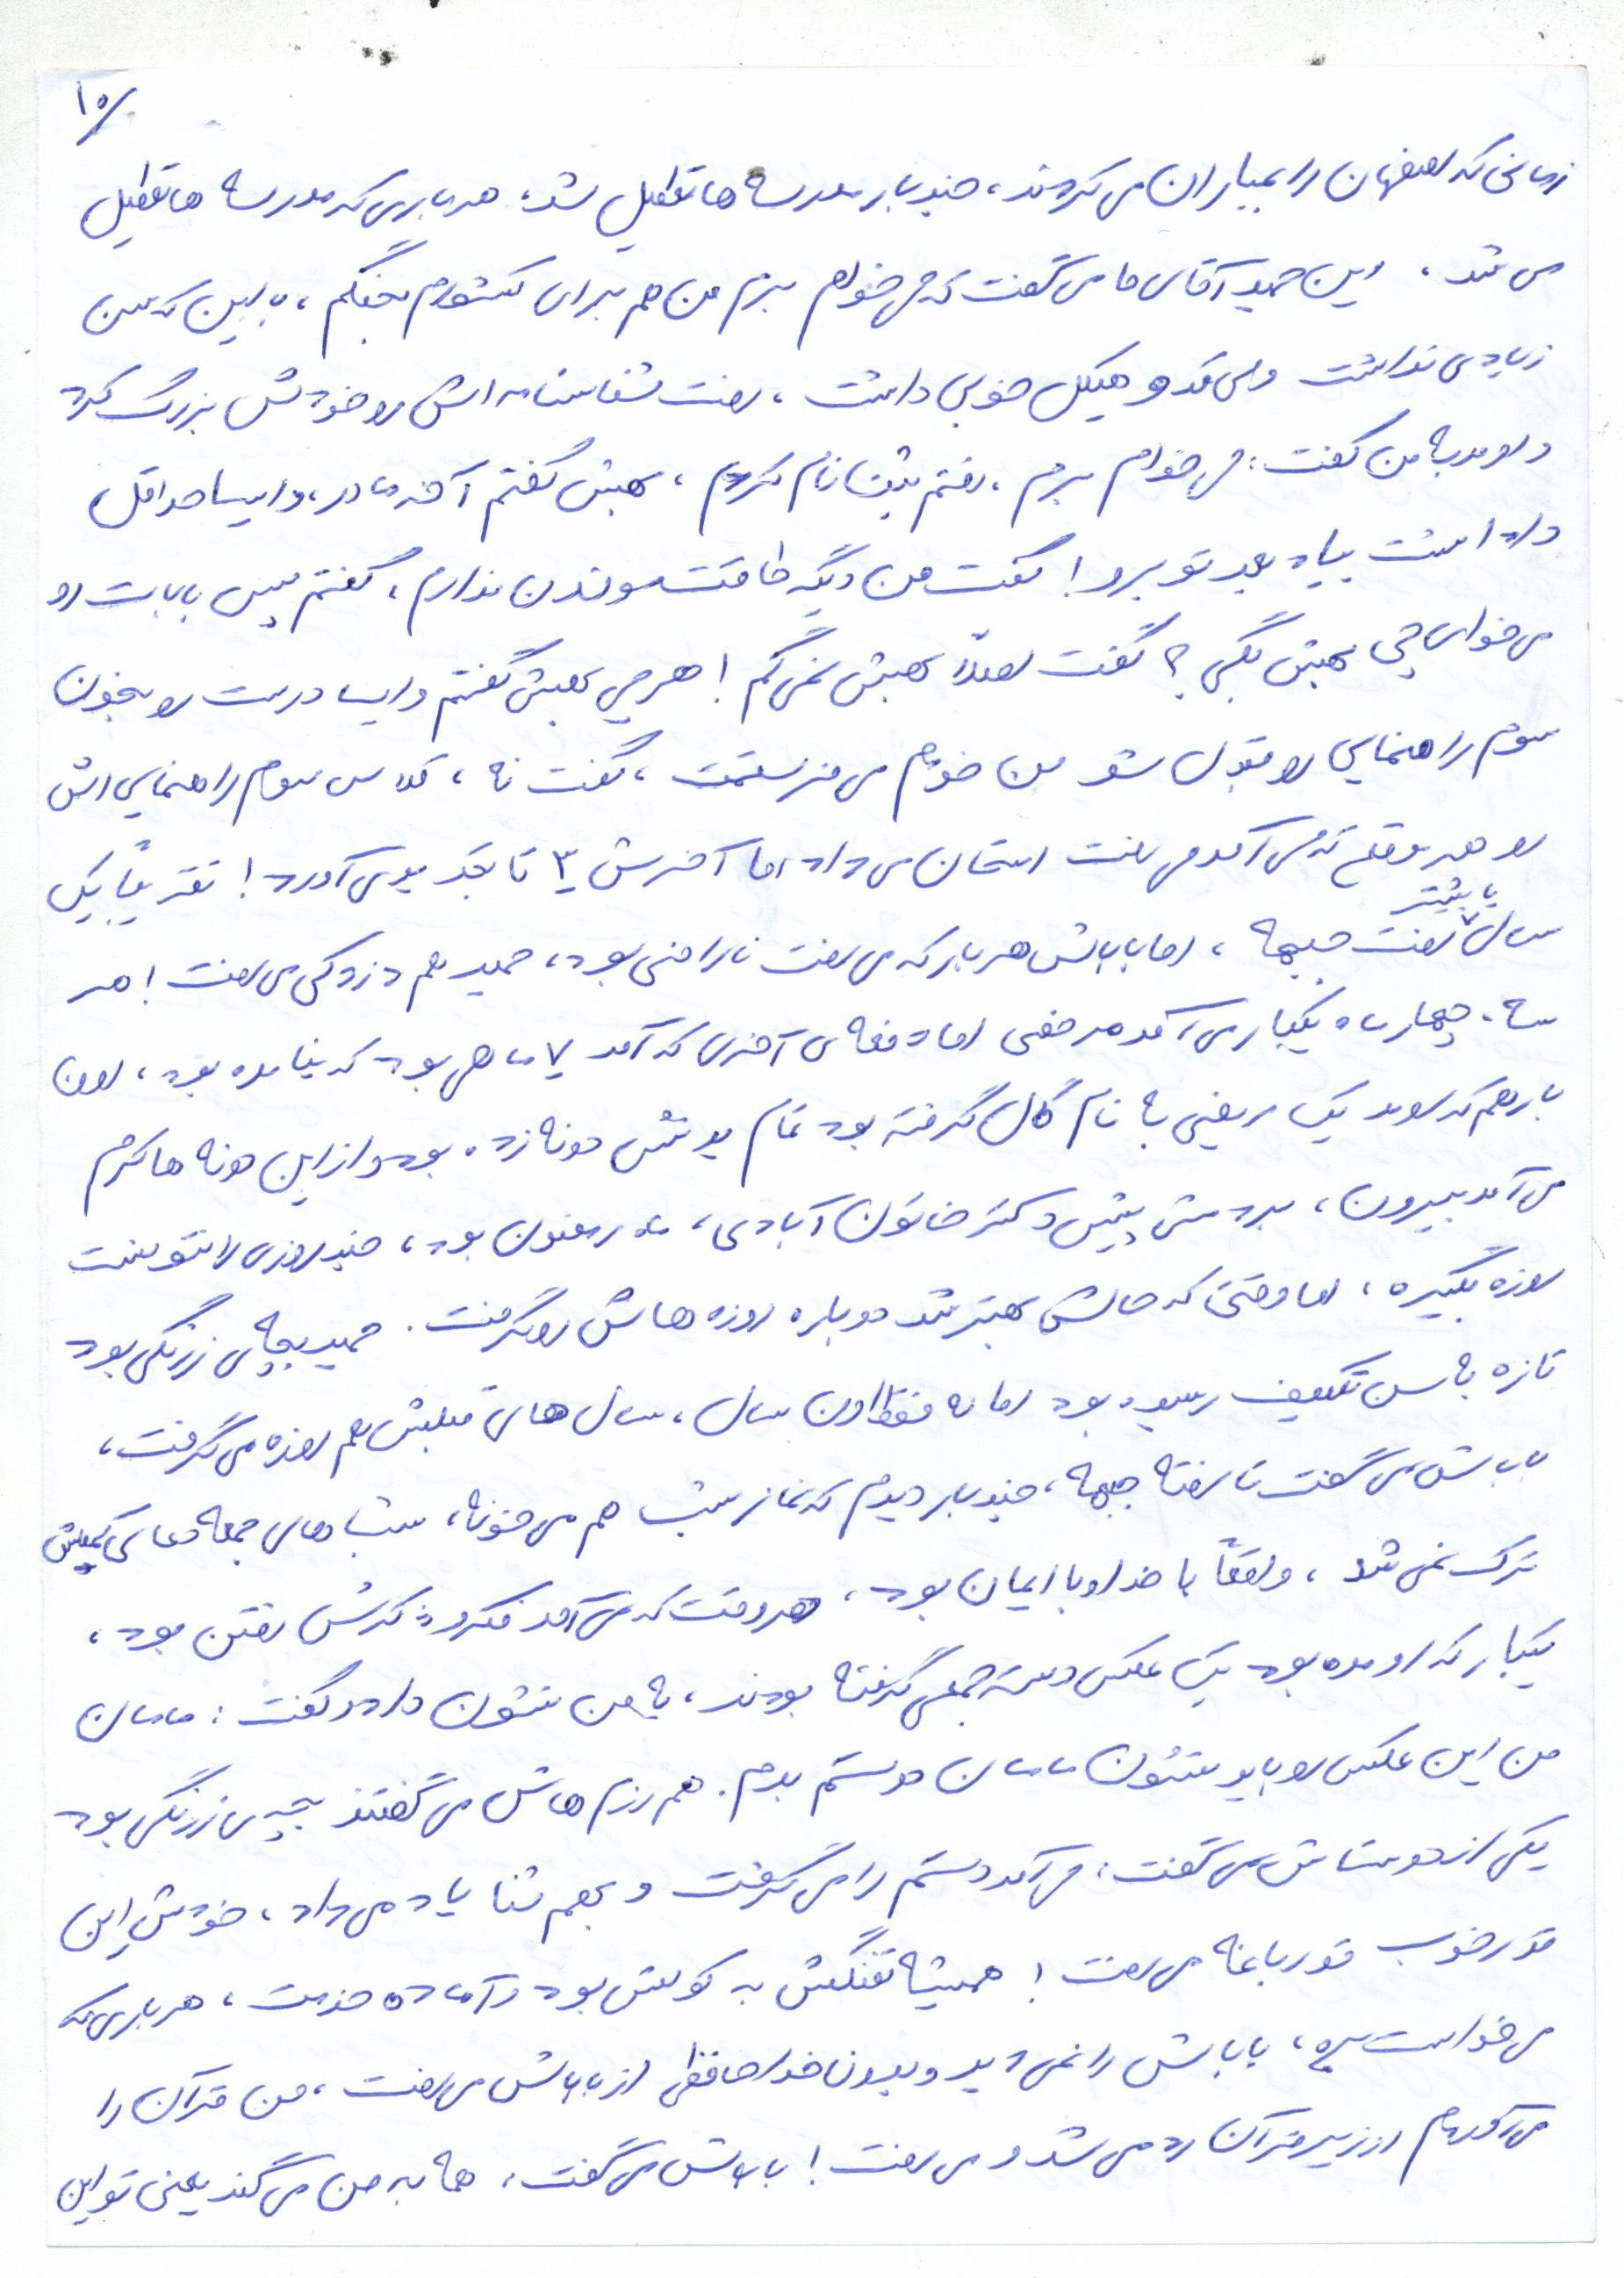 ۱۰/
زمانی که اصفهان را بمباران می کردند، چند بار مدرسه ها تعطیل شد، هر باری که مدرسه ها تعطیل
می شد، این حمید آقای ما می گفت که می خواهم برم من هم برای کشورم بجنگم، با این که سن
زیادی نداشت ولی قد و هیکل خوبی داشت، رفت شناسنامه اش رو خودش بزرگ کرد
و اومد به من گفت: می خوام برم، رفتم ثبت نام کردم، بهش گفتم آخه مادر، وایسا حداقل
داداشت بیاد بعد تو برو! گفت من دیگه طاقت موندن ندارم، گفتم پس بابات رو
می خوای چی بهش بگی؟ گفت اصلاً بهش نمی گم! هر چی بهش گفتم وایسا درست رو بخون
سوم راهنمایی رو قبول شو من خودم می فرستمت، گفت نه، کلاس سوم راهنمایی اش
رو هر موقع که می آمد می رفت امتحان می داد اما آخرش ۳ تا تجدید می آورد! تقریباً یک
سال یا بیشتر رفت جبهه، اما باباش هر بار که می رفت ناراضی بود، حمید هم دزدکی می رفت! هر
سه، چهار ماه یکبار می آمد مرخصی اما دفعه ی آخری که آمد ۷ ماهی بود که نیامده بود، اون
بار هم که اومد یک مریضی به نام گال گرفته بود تمام بدنش دونه زده بود و از این دونه ها کرم
می آمد بیرون، بردمش پیش دکتر خاتون آبادی، ماه رمضون بود، چند روزی را نتونست
روزه بگیره، اما وقتی که حالش بهتر شد دوباره روزه هاش رو گرفت. حمید بچه ی زرنگی بود
تازه به سن تکلیف رسیده بود اما نه فقط اون سال، سال های قبلش هم روزه می گرفت،
باباش می گفت تا رفته جبهه، چند بار دیدم که نماز شب هم می خونه، شب های جمعه دعای کمیلش
ترک نمی شد، واقعاً با خدا و با ایمان بود، هر وقت که می آمد فکر و ذکرش رفتن بود،
یکبار که اومده بود یک عکس دسته جمعی گرفته بودند، به من نشون داد و گفت: مامان
من این عکس رو باید نشون مامان دوستم بدم. هم رزم هاش می گفتند بچه ی زرنگی بود
یکی از دوستاش می گفت، می آمد دستم را می گرفت و بهم شنا یاد می داد، خودش این
قدر خوب قورباغه می رفت! همیشه تفنگش به کولش بود و آماده خدمت، هر باری که
می خواست بره، باباش را نمی دید و بدون خداحافظی از باباش می رفت، من قرآن را
می آوردم از زیر قرآن رد می شد و می رفت! باباش می گفت، همه به من می گند یعنی تو این